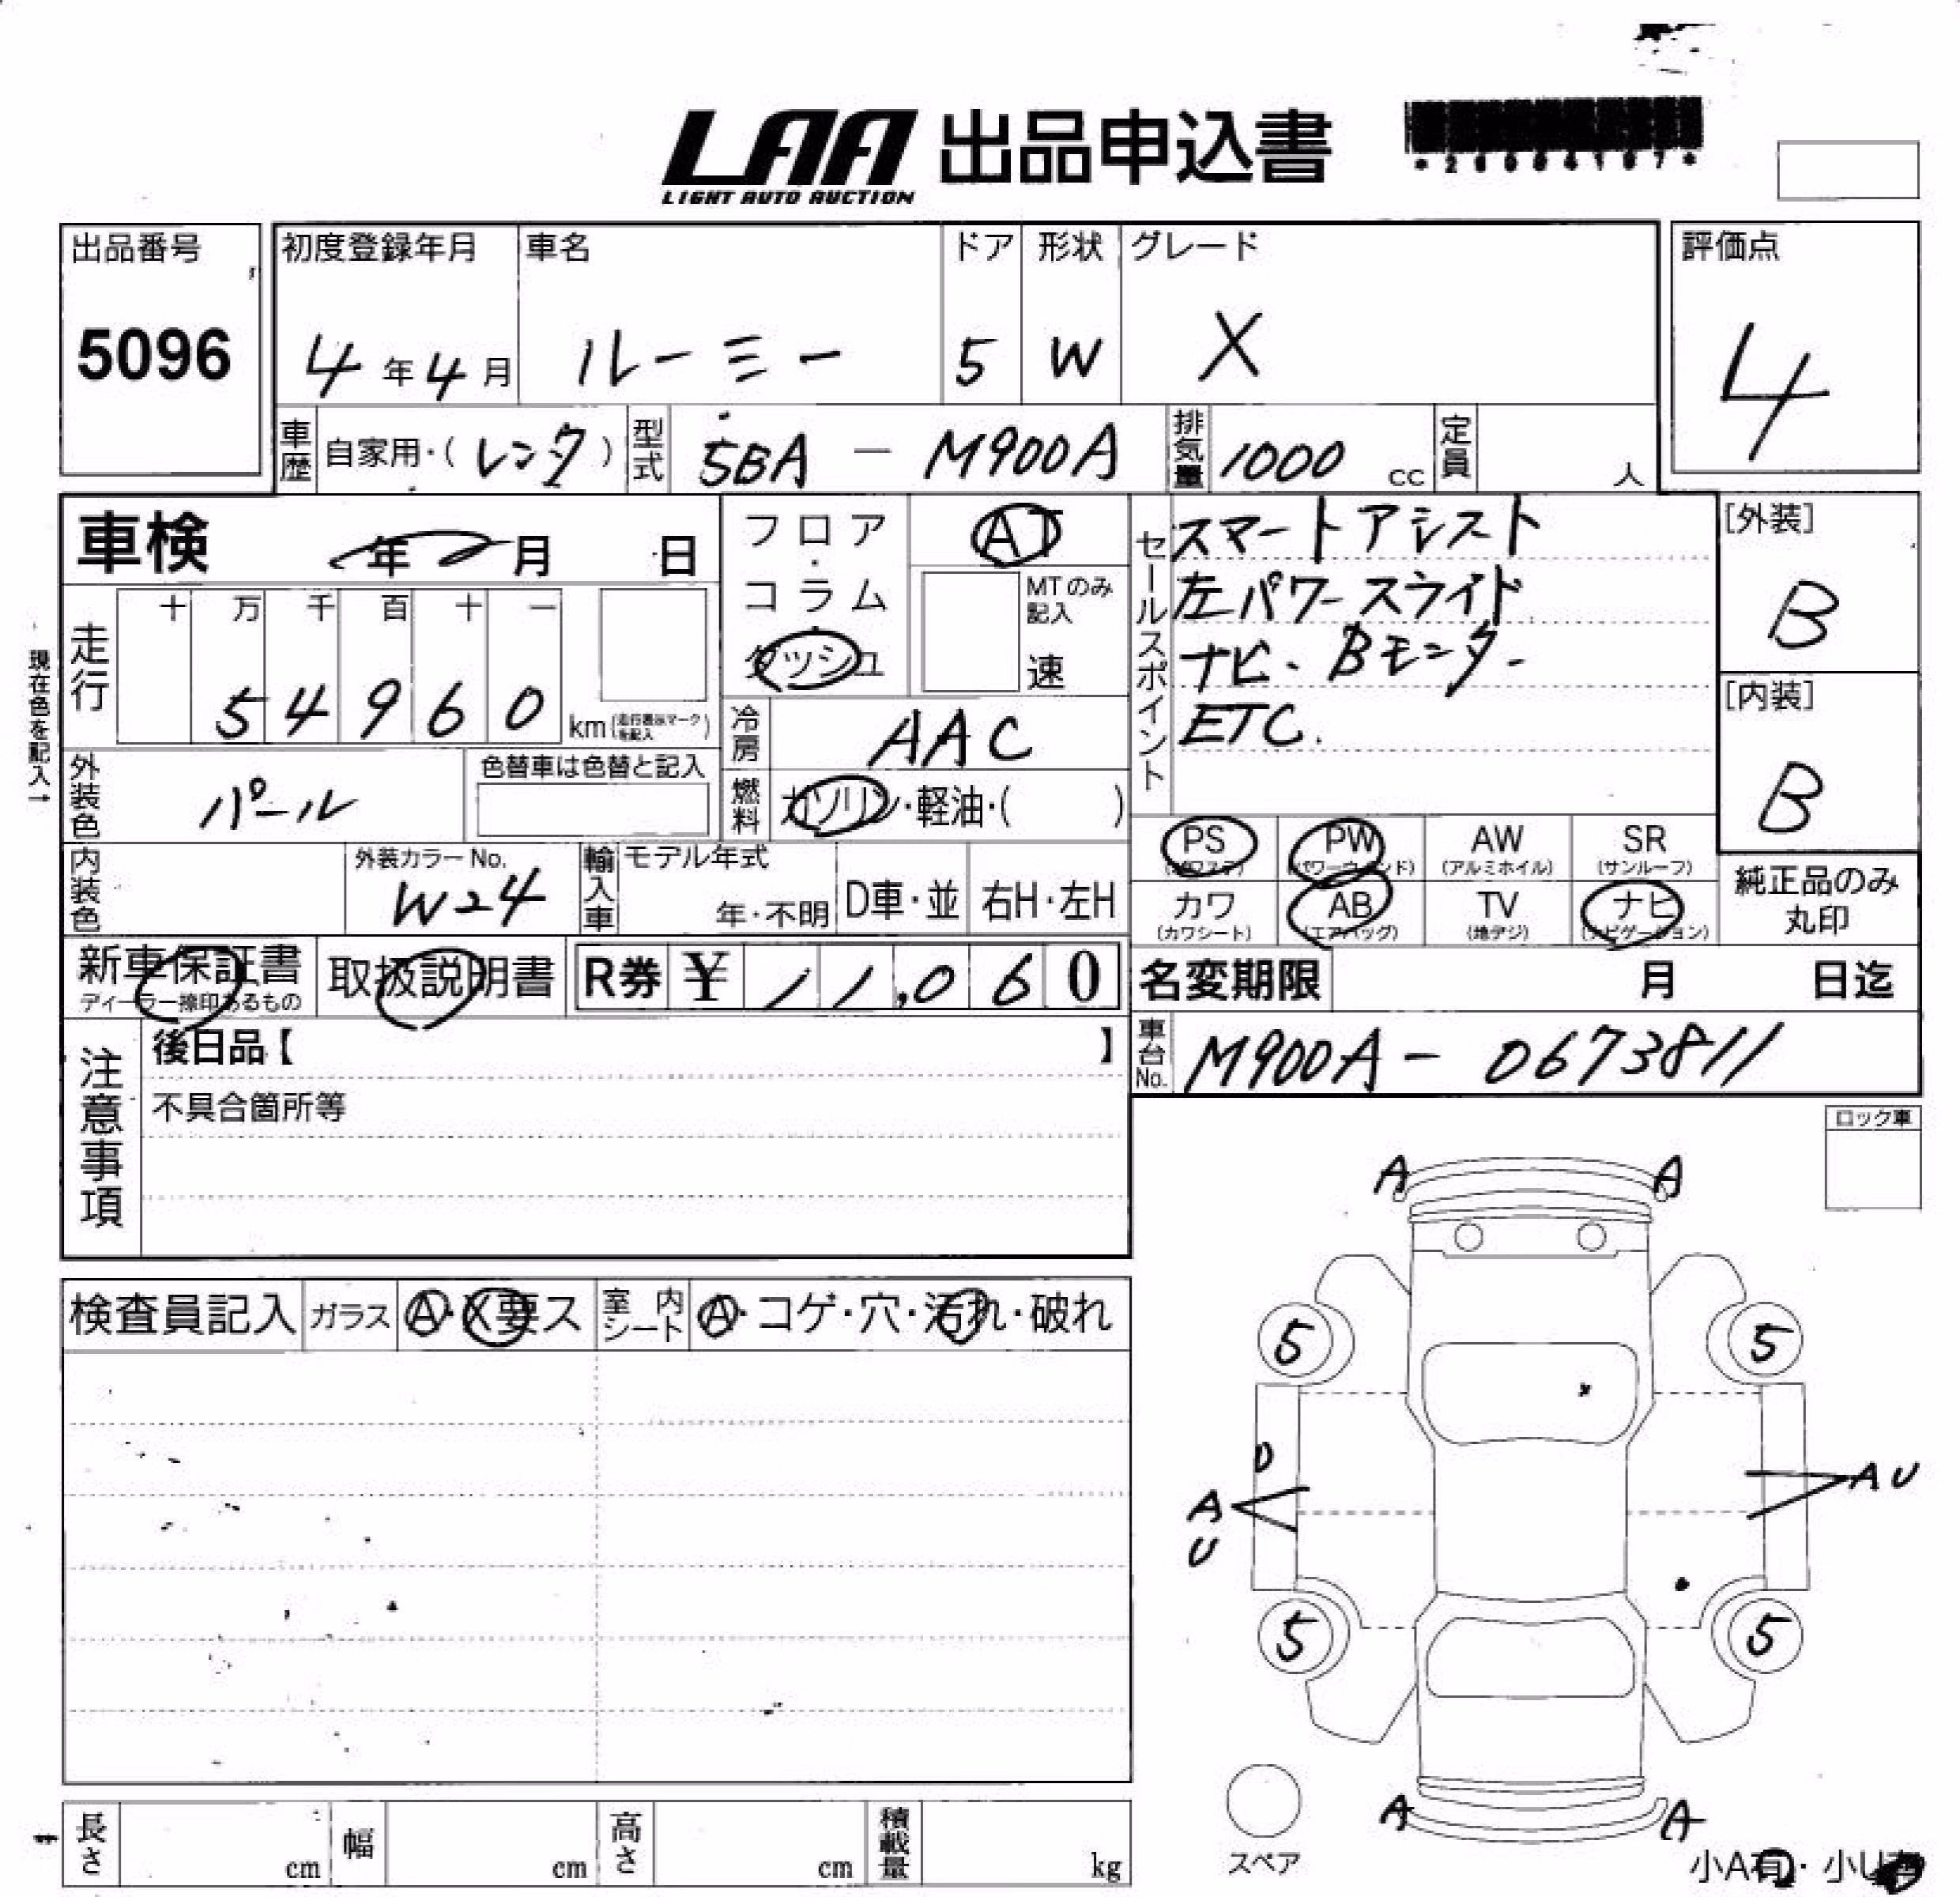 LAA 出品申込書
LIGHT AUTO AUCTION
出品番号
5096
初度登録年月
4年4月
車名
ルーミー
ドア
5
形状
W
グレード
X
評価点
4
車歴 自家用・(レンタ)
型式 5BA - M900A
排気量 1000 cc
定員 人
車検 年 月 日
フロア・コラム・ダッシュ
AT
MTのみ記入
速
セールスポイント
スマートアシスト
左パワースライド
ナビ、Bモニター
ETC.
[外装]
B
[内装]
B
現在色を記入→
走行
十 万 千 百 十 一
5 4 9 6 0 km(走行表示マークを記入)
冷房 AAC
燃料 ガソリン・軽油・( )
外装色 パール
色替車は色替と記入
内装色
外装カラーNo.
W24
輸入車
モデル年式
年・不明
D車・並
右H・左H
PS (パワステ)
PW (パワーウィンド)
AW (アルミホイル)
SR (サンルーフ)
カワ (カワシート)
AB (エアバッグ)
TV (地デジ)
ナビ (ナビゲーション)
純正品のみ
丸印
新車保証書
ディーラー捺印あるもの
取扱説明書
R券 ¥ 11,060
名変期限 月 日迄
車台No. M900A - 0673811
注意事項
後日品【 】
不具合箇所等
ロック車
検査員記入 ガラス A・X要ス 室内シート A・コゲ・穴・汚れ・破れ
A A
5 5
D
A U
A U
5 5
スペア
A A
小A有・小U有
長さ cm
幅 cm
高さ cm
積載量 kg